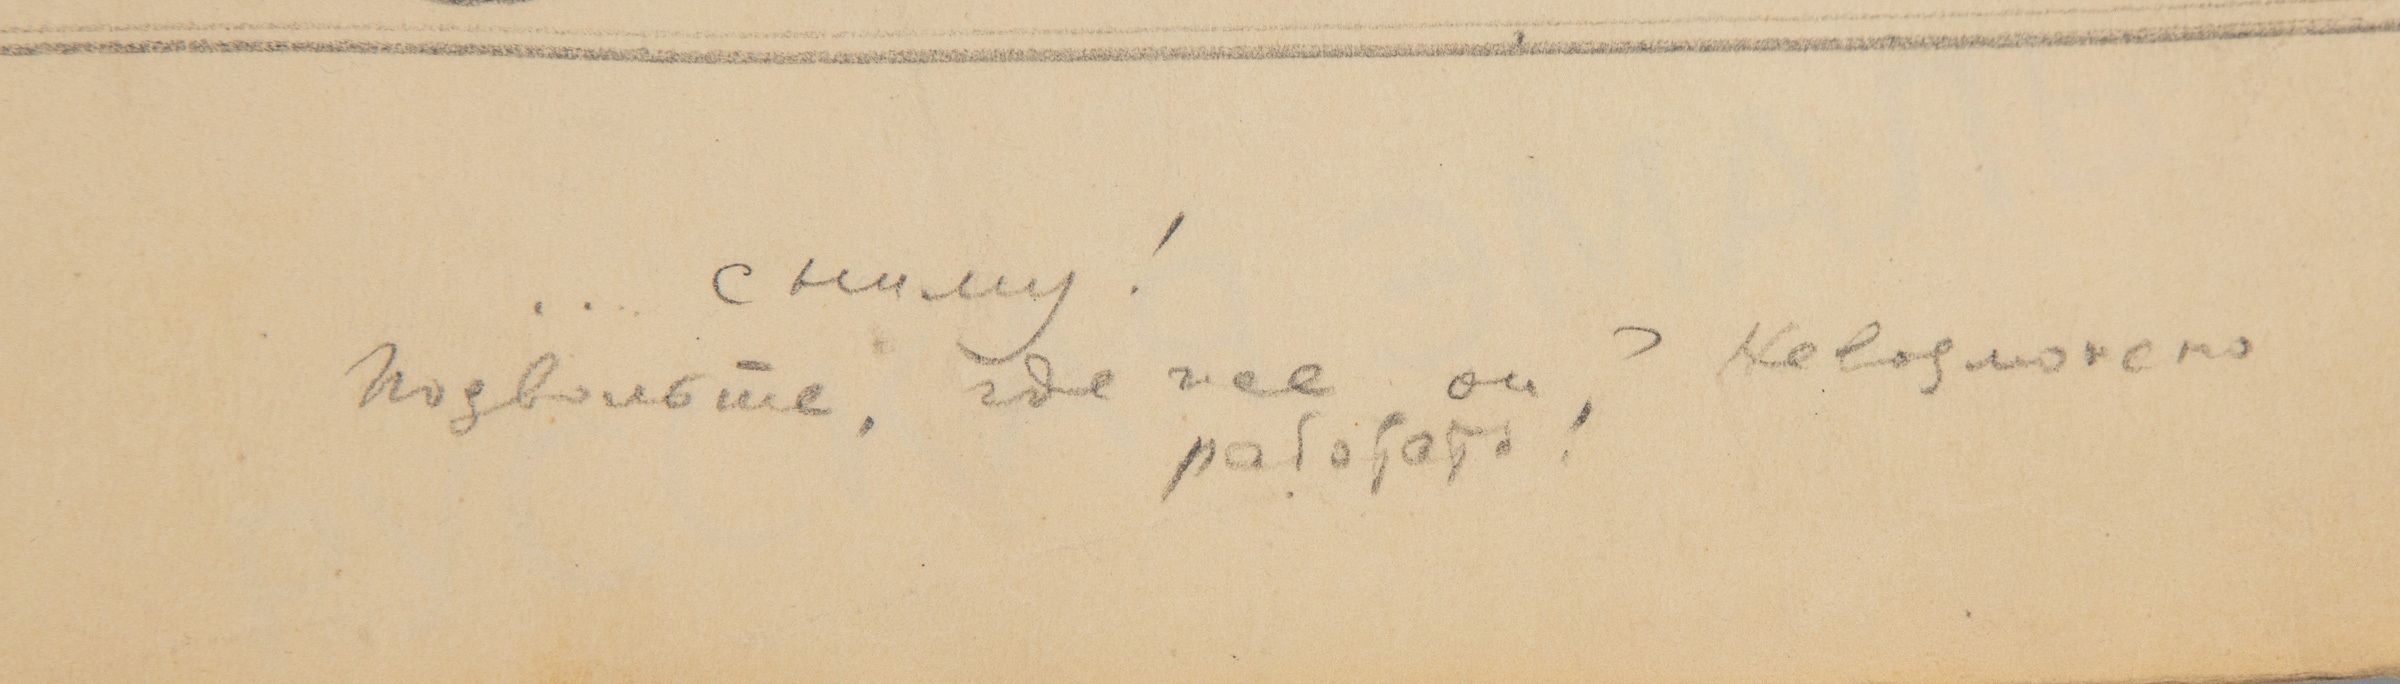 ... сниму!
Подвольте, где же он? Невозможно
работать!